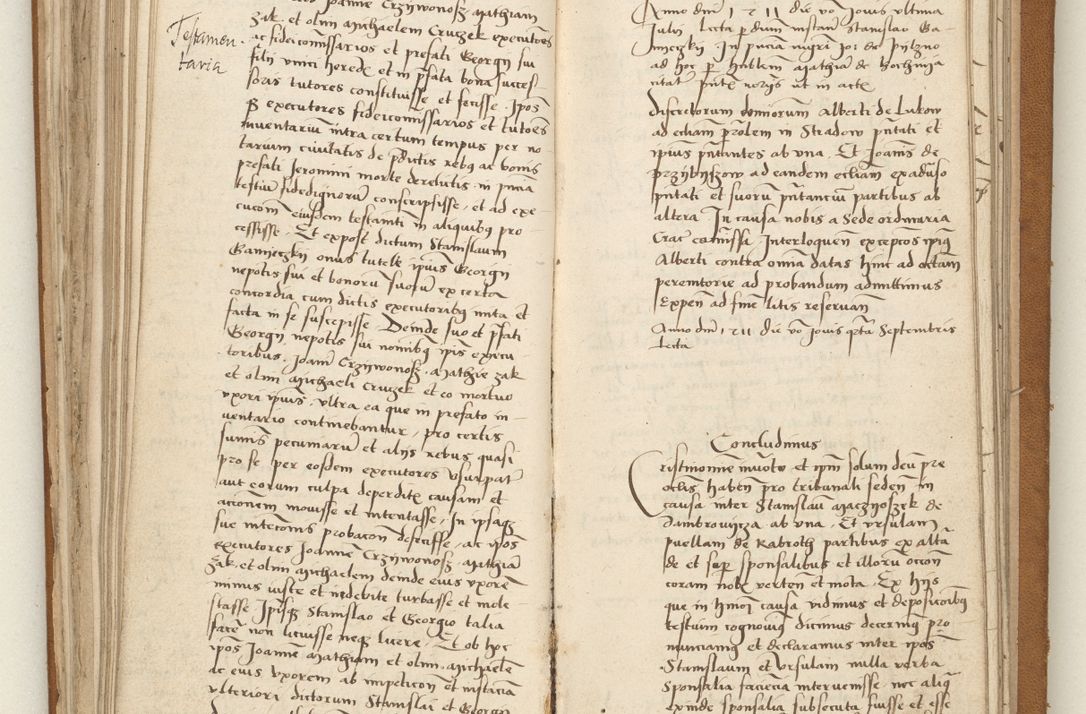 Testamen
taria
Joanne Crzywonosz Mathiam
Zak et olim Michaelem Cruczek executores
ac fideicomissarios et prefati Georgii sui
filii unici hered et in pfata bona succes
sores tutores constituisse et fecisse Ipos
executores fideicomissarios et tutores
inventariu intra certum tempus per no
tarium civitatis de pdictis rebq ac bonis
prefati Jeronimi morte derelictis in pntia
testiu fidedignoru conscripsisse et ad exe
cucom eiusdem testamti in aliquibq pro
cessisse Et expost dictum Stanislaum
Gamieczky onus tutele ipius Georgii
nepotis sui et bonoru suoru ex certa
concordia cum dictis executoribq inita et
facta in se suscepisse Deinde suo et pfati
Georgii nepotis sui nomibq ipis execu
toribus Joanni Crzywonosz Mathie Zak
et olim Michaeli Cruczek et eo mortuo
uxori ipius ultra ea que in prefato in
ventario continebantur pro certis
sumis pecuniaru et aliis rebus quasi
pro se per eosdem executores usurpat
aut eorum culpa deperdit causam et
accionem movisse et intentasse In ipsaq
sue intecomis probacon defecisse ac ipos
executores Joanne Crzywonosz Mathia
Zak et olim Michaelem deinde eius uxore
minus iuste et indebite turbasse et mole
stasse Ipisq Stanislao et Georgio talia
facere non licuisse neq licere Et ob hoc
ipos Joanne Mathiam et olim Michaele
ac eius uxorem ab impeticon et instancia
ulteriori dictorum Stanislai et Georgii
Anno dni 1511 die vo Jovis ultima
Julii Lecta p dium instan Stanislao Ga
mieczky In pncia nigri Joi de Pilzno
ad hoc p hnblem Mathia de Kochinia
citat pnte notrijs ut in actis
Discretorum dominorum Alberti de Lukow
ad ecliam prolem in Stradow pntati et
ipius pntantes ab una Et Joanis de
Przybyszow ad eandem ecliam exadvso
pntati et suoru pntancium partibus ab
altera In causa nobis a Sede ordinaria
Crac comissa Interloquen excepcos ipiq
Alberti contra omnia datas hinc ad octam
peremtorie ad probandum admittimus
Expen ad fine litis reservan
Anno dni 1511 die vo Jovis qrta Septembris
Lecta
Concludimus
Cristi nomine invocto et ipm solum deu pre
oclis haben pro tribunali seden in
causa inter Stanislau Maczyoszek de
Dambrowicza ab una Et Ursulam
puellam de Kabroth partibus ex alta
de et sup sponsalibus et illoru occon
coram nobis verten et mota Ex hiis
que in hmoi causa vidimus et deposicoibq
testium cognovimq dicimus decernimq pro
nunciamq et declaramus inter ipos
Stanislaum et Ursulam nulla verba
Sponsalia faciencia intervenisse nec aliq
exinde sponsalia subsecuta fuisse et esse